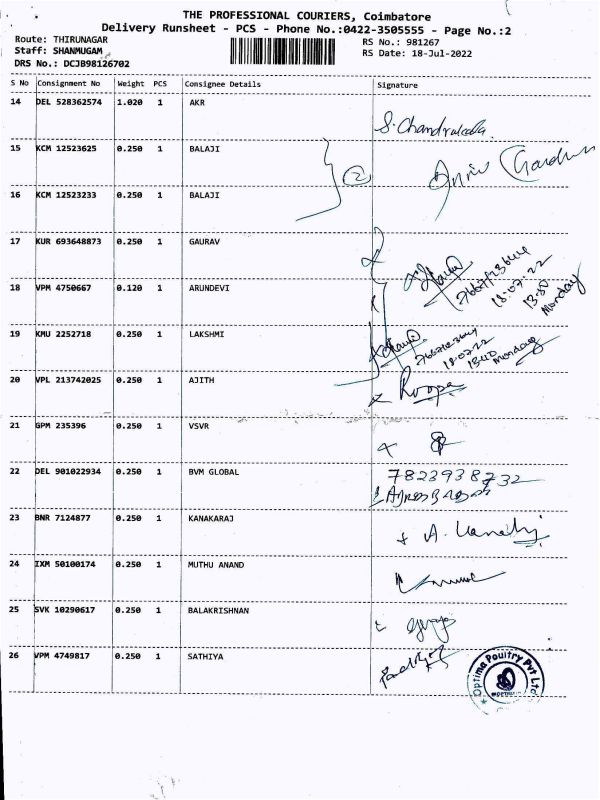 THE PROFESSIONAL COURIERS, Coimbatore
Delivery Runsheet - PCS - Phone No.:0422-3505555 - Page No.:2
Route: THIRUNAGAR
Staff: SHANMUGAM
DRS No.: DCJB98126702
RS No.: 981267
RS Date: 18-Jul-2022
S No Consignment No Weight PCS Consignee Details Signature
14 DEL 528362574 1.020 1 AKR
S. Chandralekha
15 KCM 12523625 0.250 1 BALAJI
2
16 KCM 12523233 0.250 1 BALAJI
17 KUR 693648873 0.250 1 GAURAV
18 VPM 4750667 0.120 1 ARUNDEVI
18.07.22
13:30
Monday
19 KMU 2252718 0.250 1 LAKSHMI
18.07.22
Monday
20 VPL 213742025 0.250 1 AJITH
Roopa
21 GPM 235396 0.250 1 VSVR
22 DEL 901022934 0.250 1 BVM GLOBAL
7823938732
23 BNR 7124877 0.250 1 KANAKARAJ
24 IXM 50100174 0.250 1 MUTHU ANAND
25 SVK 10290617 0.250 1 BALAKRISHNAN
26 VPM 4749817 0.250 1 SATHIYA
Optima Poultry Pvt Ltd